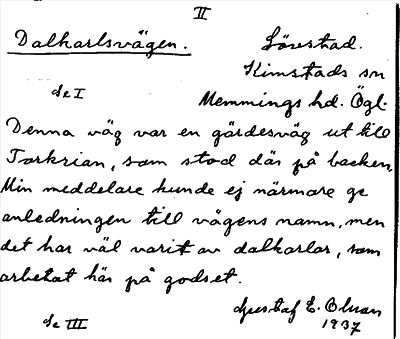 II
Dalkarlsvägen. Lövstad.
Kimstads sn
Se I Memmings hd. Ögl.
Denna väg var en gärdesväg ut till
Torkrian, som stod där på backen.
Min meddelare kunde ej närmare ge
anledningen till vägens namn, men
det har väl varit av dalkarlar, som
arbetat här på godset.
Gustaf E. Olsson
Se III 1937